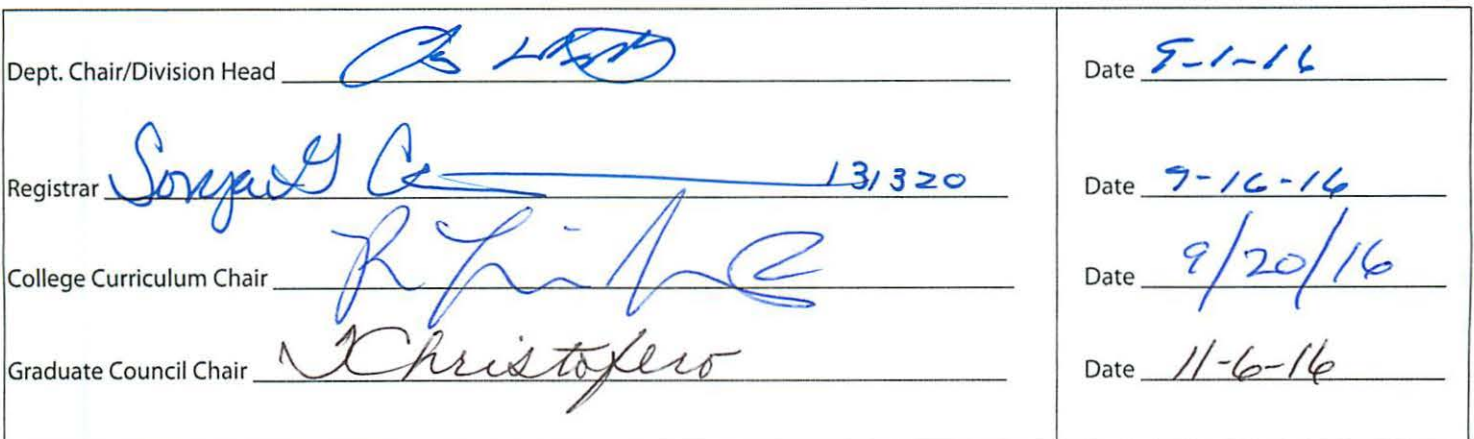 Dept. Chair/Division Head Date 9-1-16
Registrar Sonja G 131320 Date 9-16-16
College Curriculum Chair Date 9/20/16
Graduate Council Chair Christofero Date 11-6-16